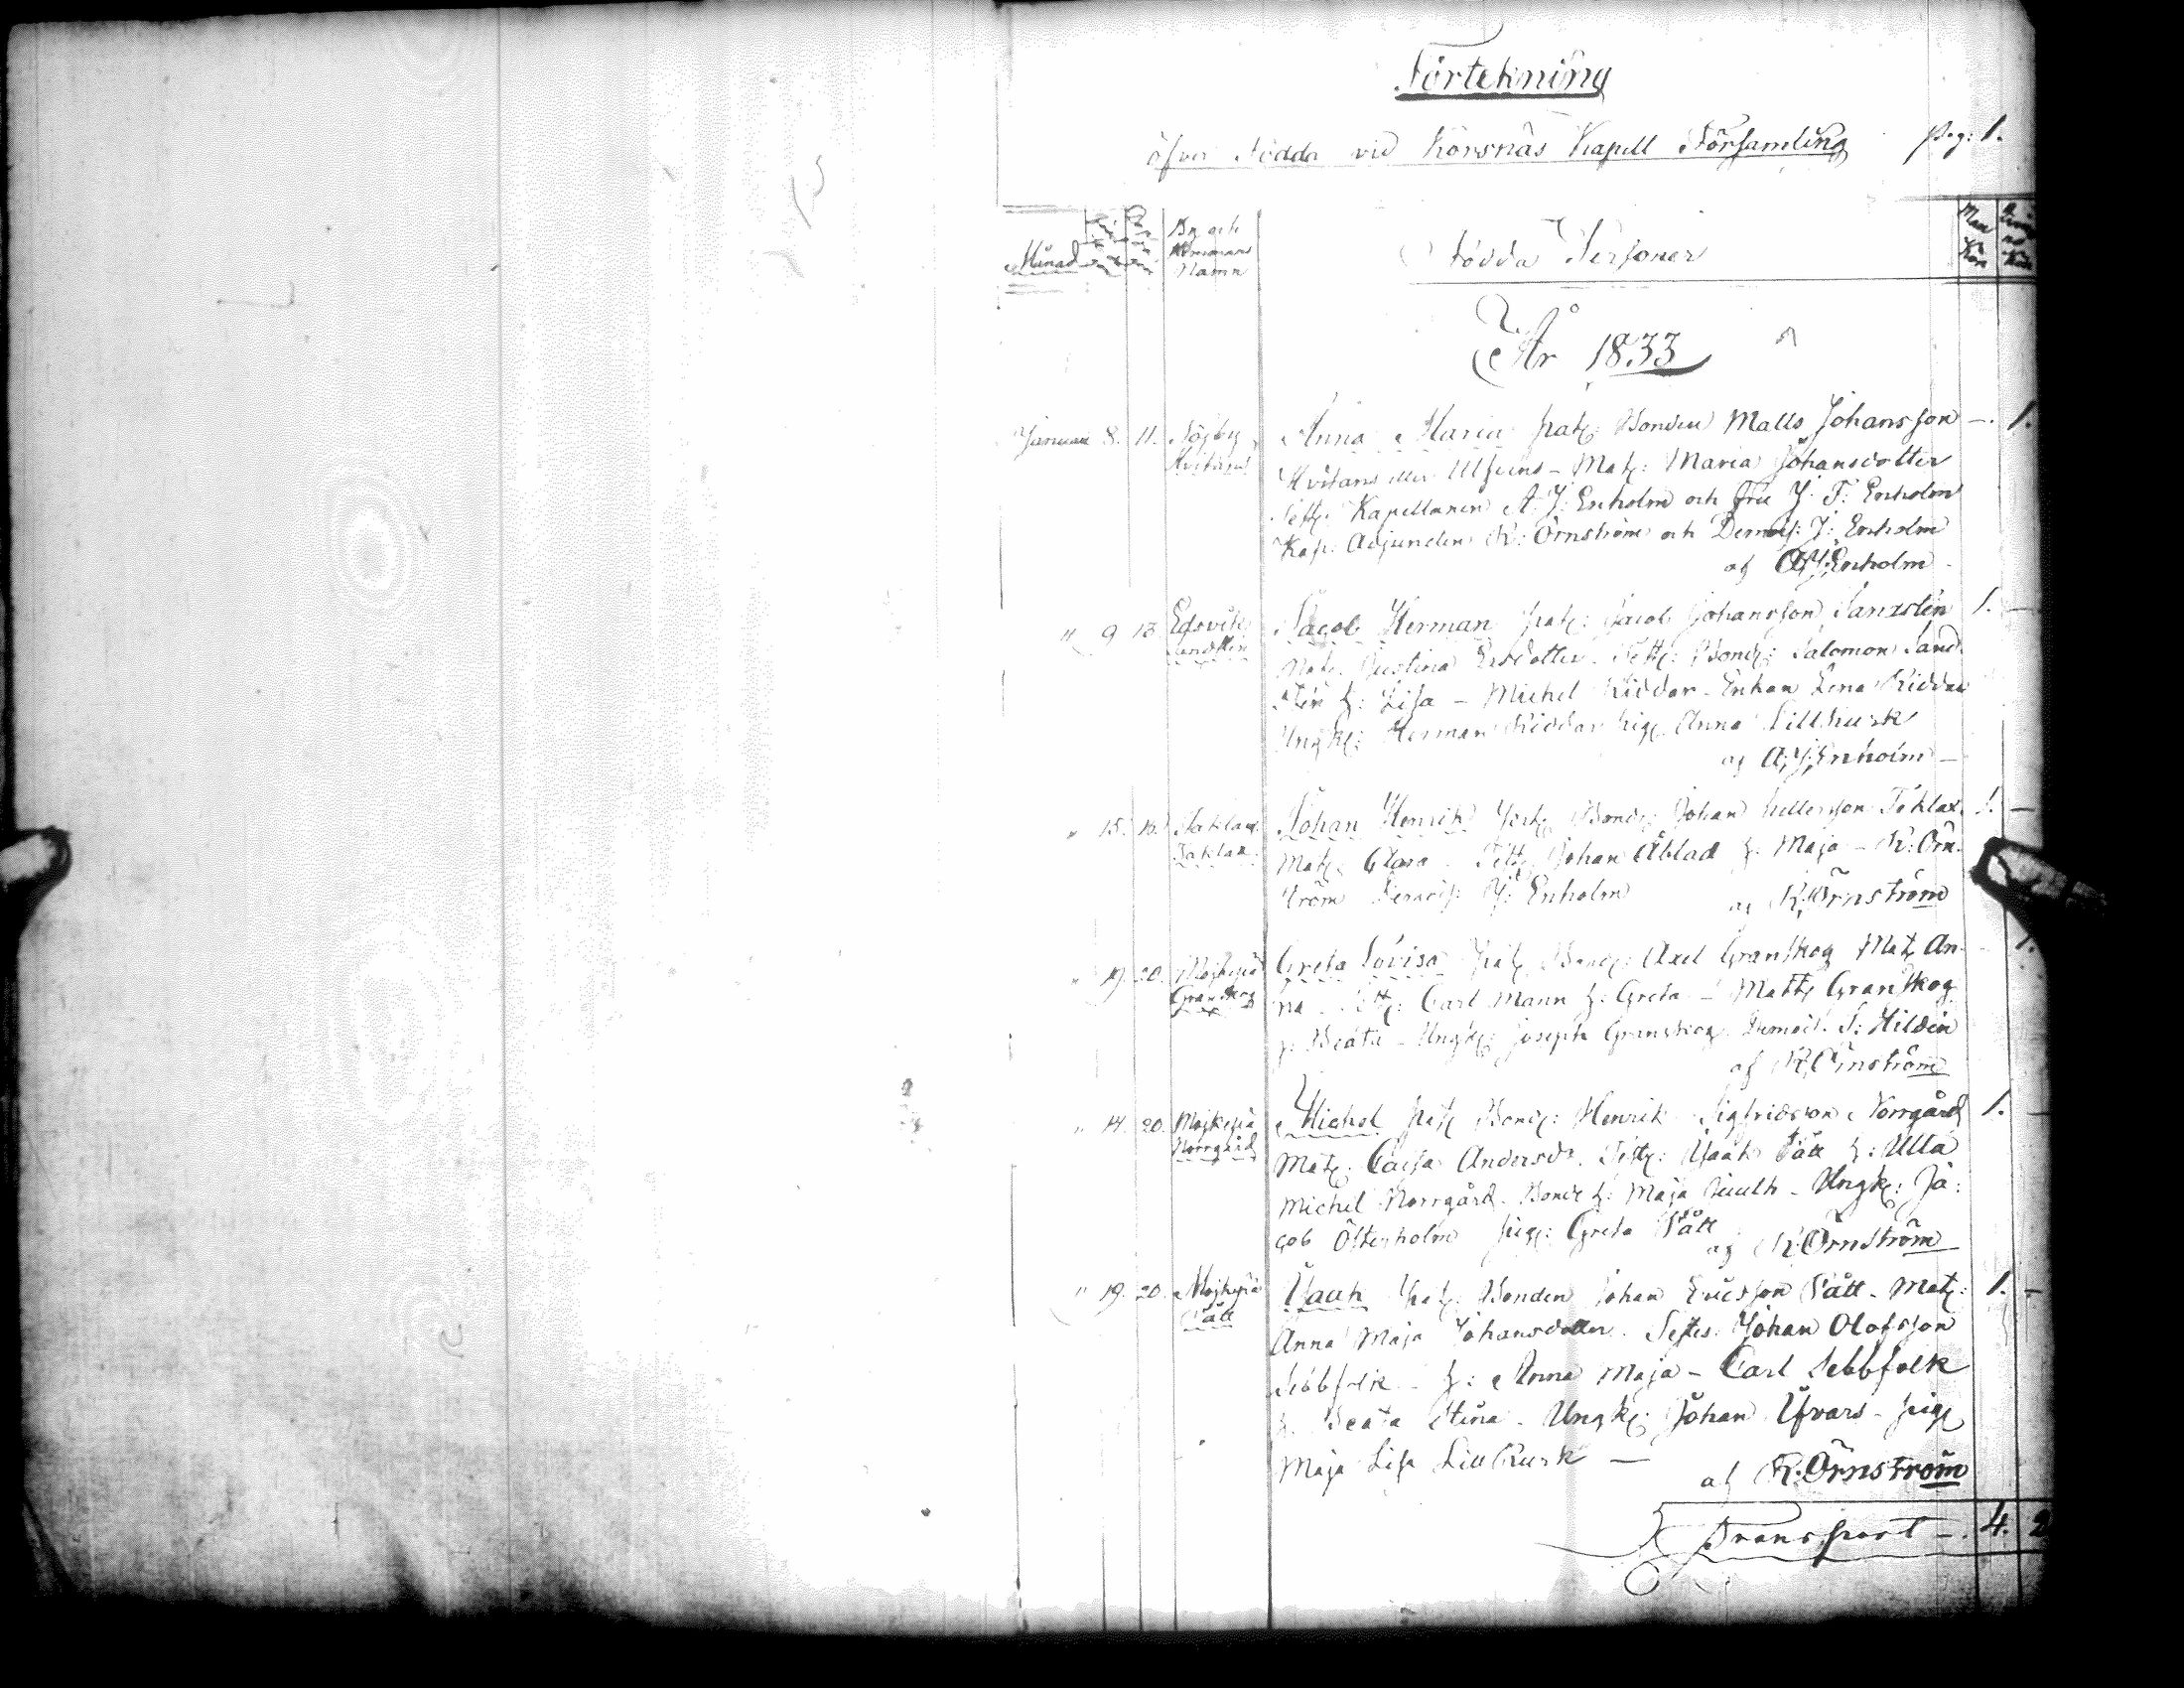 Förtekning
öfver Födda vid Korsnäs Kapell Församling pag: 1.
Månad
By och
Hemmans
Namn
Födda Personer
Man
Kön
År 1833
Januari 8. 11. Anna Maria pat: Bonden Matts Johansson — 1.
Hvitans eller Ulfvens - Mat: Maria Johansdotter
Test: Kapellanen A. J: Enholm och Fru J. F: Enholm
Kap: Adjuncten K: Örnström och Demois: J: Enholm
af A: J: Enholm
" 9 13 Edsvik Jacob Herman pat: Jacob Johansson Sandsten 1. —
Sandsten
Mat: Justina Ersdotter. Test: Bond: Salomon Sand
sten h: Lisa - Michel Riddar - Enkan Lena Riddar
Ungk: Herman Riddar pig: Anna Lillkusk
af A: J: Enholm —
" 15. 16. Taklax Johan Henrik pat: Bond: Johan Taklax 1. —
Taklax
Mat: Clara Test: Johan Åblad h: Maja - K: Örn-
ström Demois: J: Enholm
af K: Örnström
" 19. 20. Mojkepä Greta Lovisa pat: Bond: Axel Granskog Mat: An- — 1.
Granskog
na Test: Carl Mann h: Greta - Matts Granskog
h: Beata - Ungk: Joseph Granskog Demois: S: Hildén
af K: Örnström
" 14. 20. Mojkepä Michel pat: Bond: Henrik Sigfridsson Norrgård 1. —
Norrgård
Mat: Caisa Andersdr. Test: Isaak Pått h: Ulla
Michel Norrgård. Bond: h: Maja - Ungk: Ja:
cob Österholm pig: Greta Pått
af K: Örnström
" 19. 20. Mojkepä Isaak pat: Bonden Johan Ericsson Pått - Mat: 1. —
Pått
Anna Maja Johansdotter. Testes: Johan Olofsson
Sebbfolk - h: Anna Maja - Carl Sebbfolk
h: Beata Stina - Ungk: Johan Ifvars - pig:
Maja Lisa Lillkusk —
af K: Örnström
Transport — 4. 2